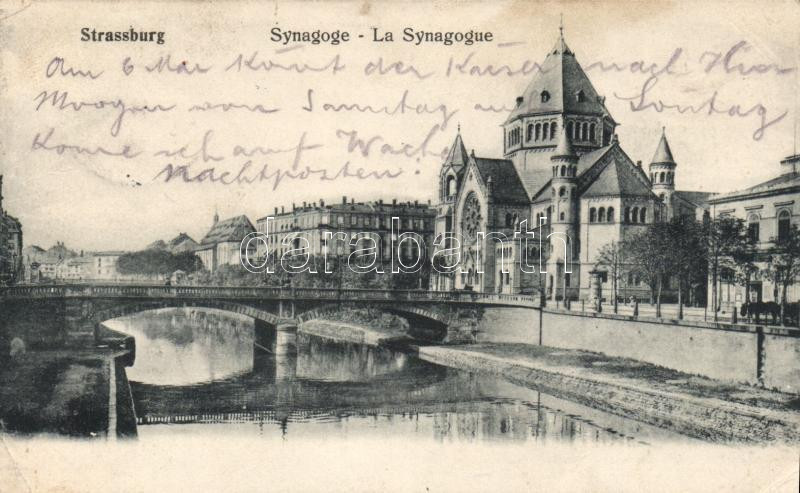 Strassburg
Synagoge - La Synagogue
Am 6 Mai komt der Kaiser nach Hier
Morgen von Samstag auf Sontag
Kome ich auf Wach
Nachtposten.
darabanth